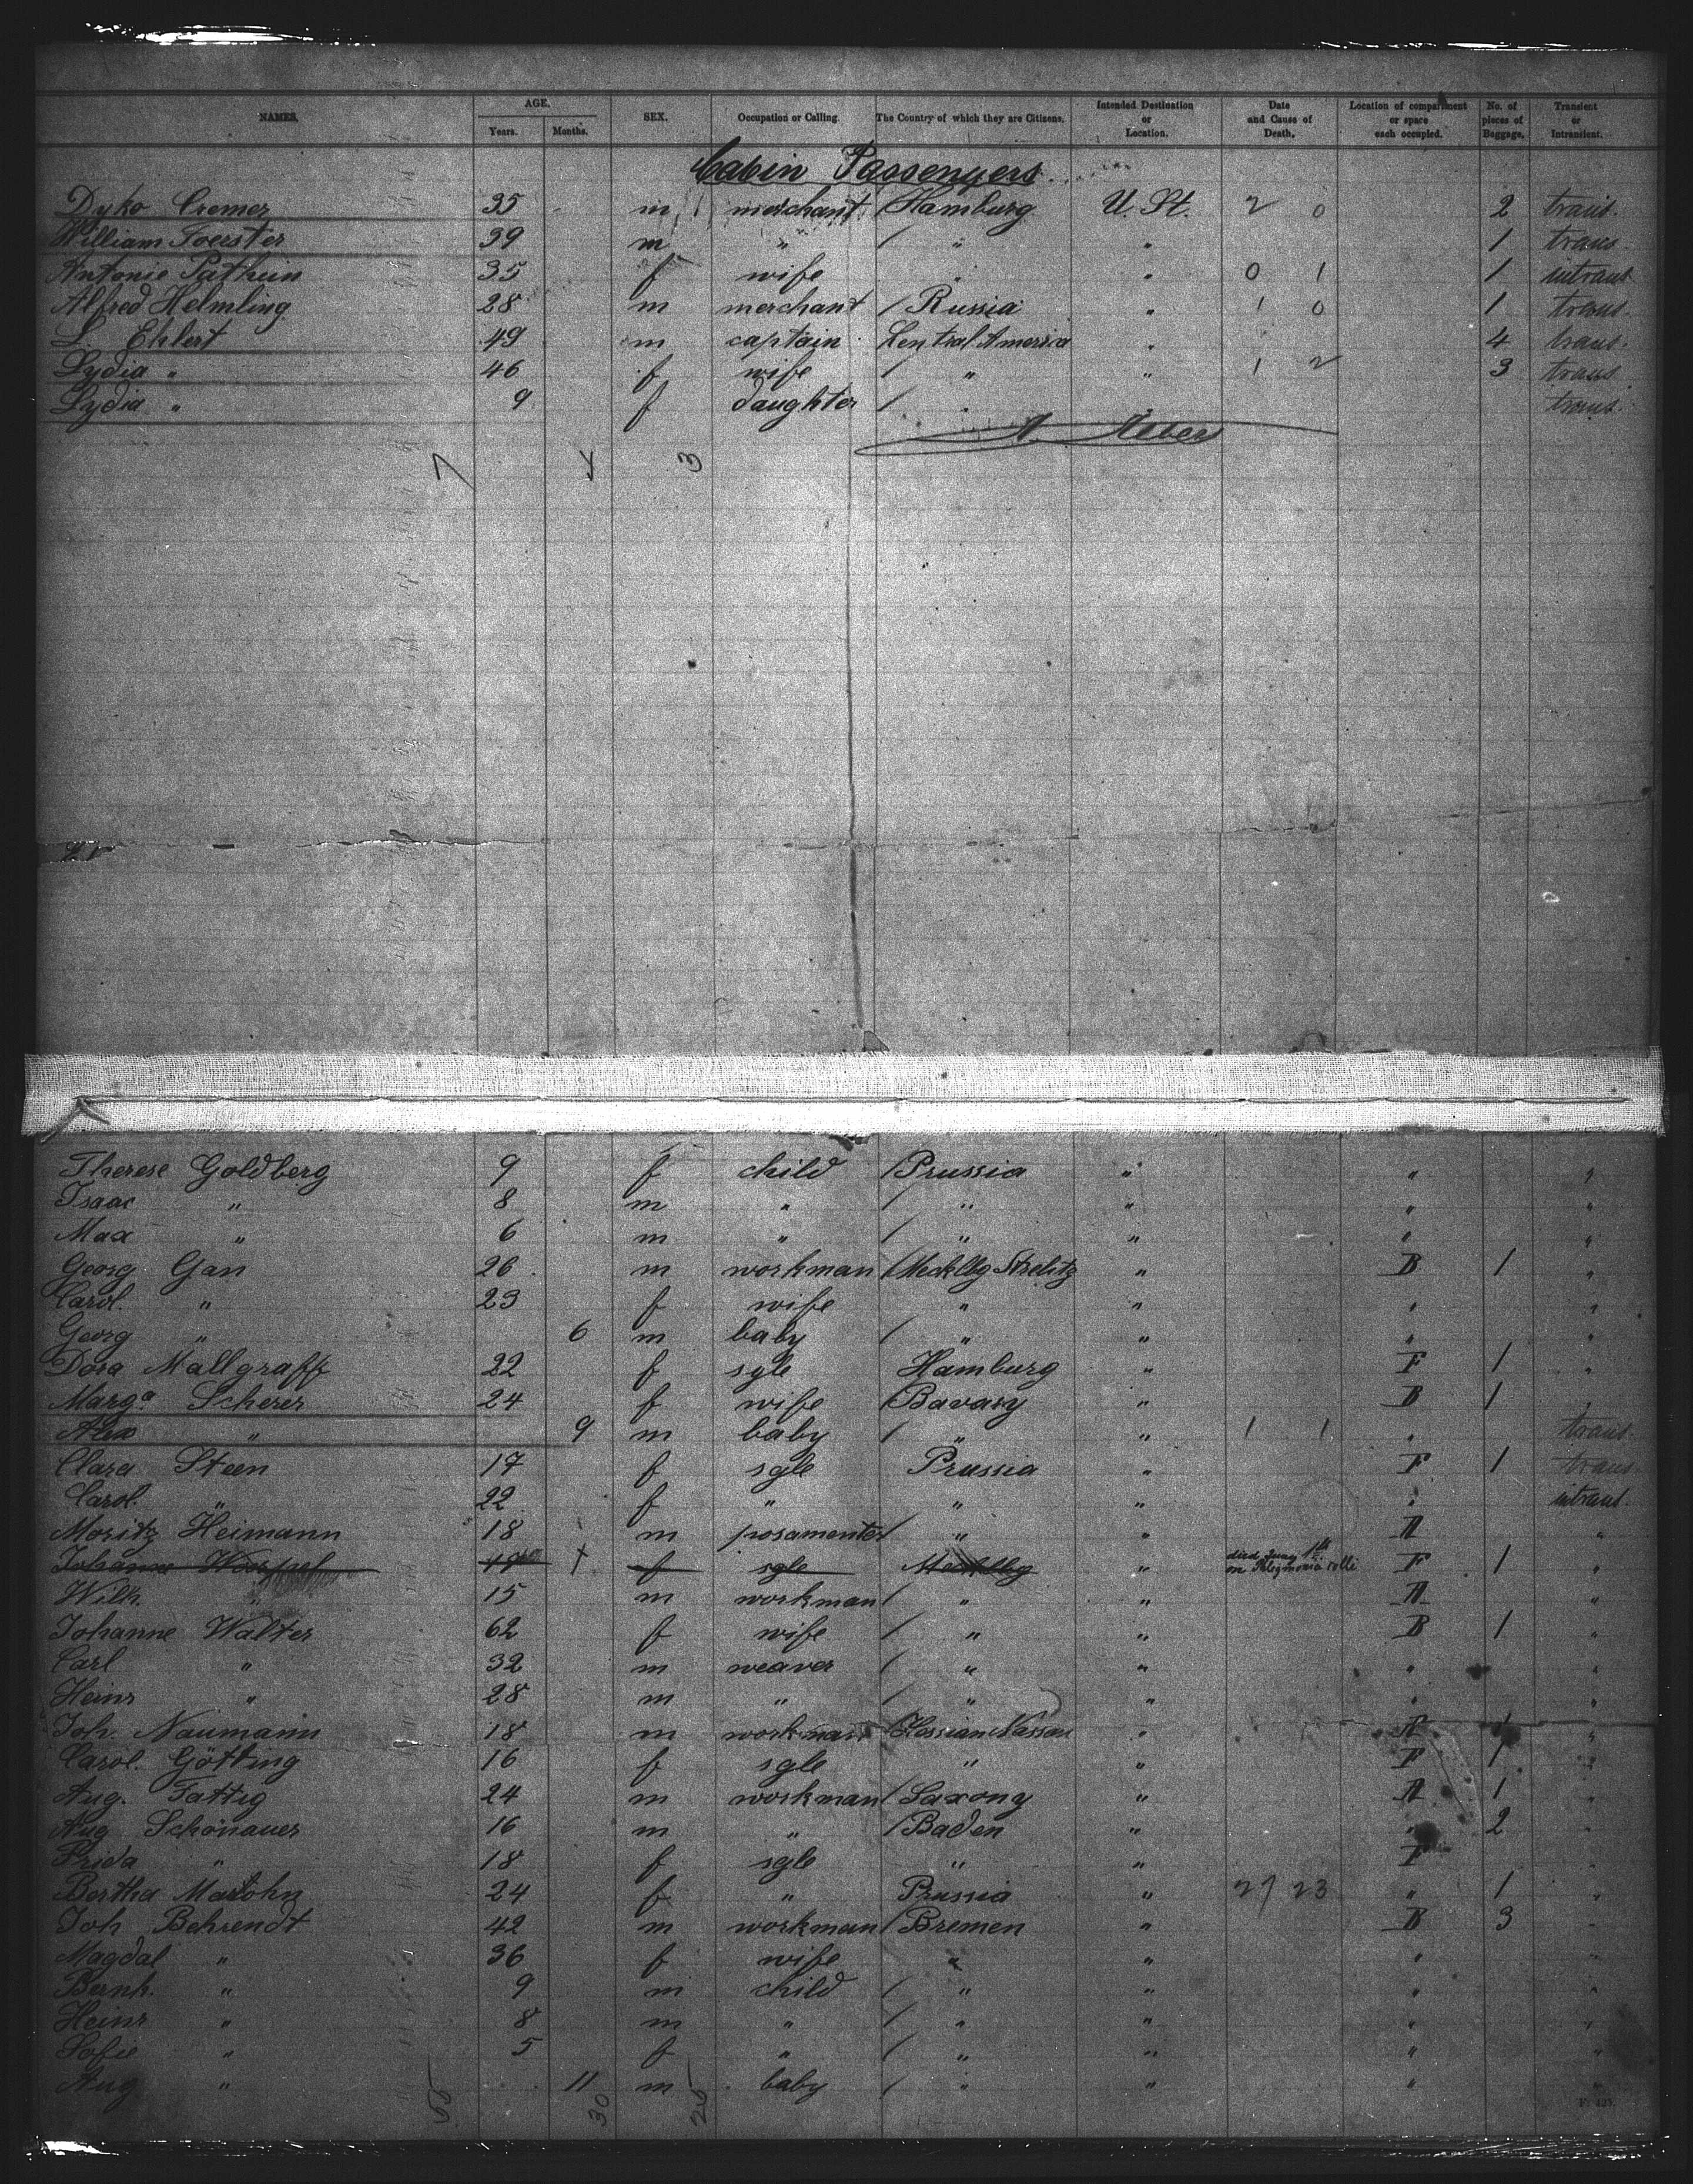 NAMES. AGE. Years. Months. SEX. Occupation or Calling. The Country of which they are Citizens. Intended Destination or Location. Date and Cause of Death. Location of compartment or space each occupied. No. of pieces of Baggage. Transient or Intransient.
Cabin Passengers
Dyko Cremer 35 m merchant Hamburg U. St. 2 0 2 trans.
William Foerster 39 m " / " " 1 trans.
Antonie Pathein 35 f wife " " 0 1 1 intrans.
Alfred Helmling 28 m merchant / Russia " 1 0 1 trans.
L. Ehlert 49 m captain Central America " 4 trans.
Lydia " 46 f wife / " " 1 2 3 trans
Lydia " 9 f daughter / " trans.
7 4 3
Therese Goldberg 9 f child / Prussia " " "
Isaac " 8 m " / " " " "
Max " 6 m " / " " " "
Georg Gan 26 m workman / Mecklbg Strelitz " B 1 "
Carol. " 23 f wife " " " "
Georg " 6 m baby / " " " "
Dora Mallgraff 22 f sgle Hamburg " F 1 "
Marga Scherer 24 f wife / Bavary " B 1 "
Alex " 9 m baby / " " 1 1 " trans.
Clara Steen 17 f sgle Prussia " F 1 trans
Carol. " 22 f " " " " intrans.
Moritz Heimann 18 m posamenter / " " A "
Johanne f sgle Mecklbg " died F 1 "
Wilh. " 15 m workman / " " A "
Johanne Walter 62 f wife / " " B 1 "
Carl " 32 m weaver / " " " "
Heinr " 28 m " / " " " "
Joh. Naumann 18 m workman Hessian Nassau " A 1 "
Carol. Götting 16 f sgle " " F 1 "
Aug. Tattig 24 m workman / Saxony " A 1 "
Aug Schönauer 16 m " / Baden " " 2 "
Frida " 18 f sgle " " F
Bertha 24 f " Prussia " 27 23 " 1 "
Joh Behrendt 42 m workman / Bremen " B 3 "
Magdal " 36 f wife " " " "
Bernh. " 9 m child / " " " "
Heinr " 8 m " / " " " "
Sofie " 5 f " / " " " "
Aug " 11 m baby / " " " "
55 30 25